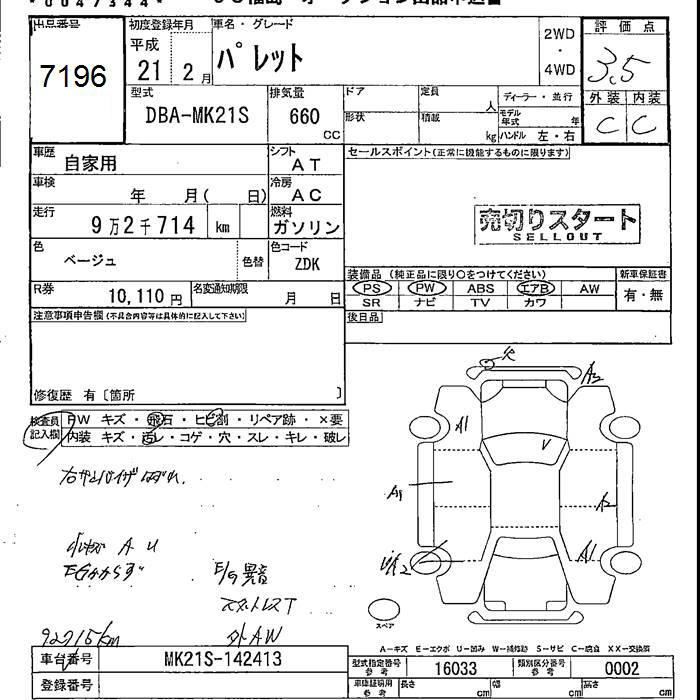 *0047344*
出品番号
7196
初度登録年月
平成
21 2月
車名・グレード
パレット
2WD
・
4WD
評価点
3.5
型式
DBA-MK21S
排気量
660
CC
ドア
定員
人
ディーラー・並行
形状
積載
kg
モデル年式 年
ハンドル 左・右
外装 内装
C C
車歴
自家用
シフト
AT
セールスポイント(正常に機能するものに限ります)
車検
年 月( 日)
冷房
AC
走行
9万2千714 km
燃料
ガソリン
売切りスタート
SELLOUT
色
ベージュ
色替
色コード
ZDK
装備品(純正品に限り○をつけてください)
新車保証書
PS PW ABS エアB AW
有・無
SR ナビ TV カワ
R券
10,110円
名変通知期限
月 日
後日品
注意事項申告欄(不具合内容等は具体的に記入して下さい)
修復歴 有〔箇所 〕
検査員記入欄
FW キズ・飛石・ヒビ割・リペア跡・×要
内装 キズ・汚レ・コゲ・穴・スレ・キレ・破レ
A2
A1
V
A1
A2
A1
右サイドバイザはずれ.
小キズ A U
E/G異音
スタットレスT
92715km
外AW
スペア
A-キズ E-エクボ U-凹み W-補修跡 S-サビ C-腐食 XX-交換済
車台番号
MK21S-142413
型式指定番号参考
16033
類別区分番号参考
0002
登録番号
車庫証明用参考
長さ cm
幅 cm
高さ cm